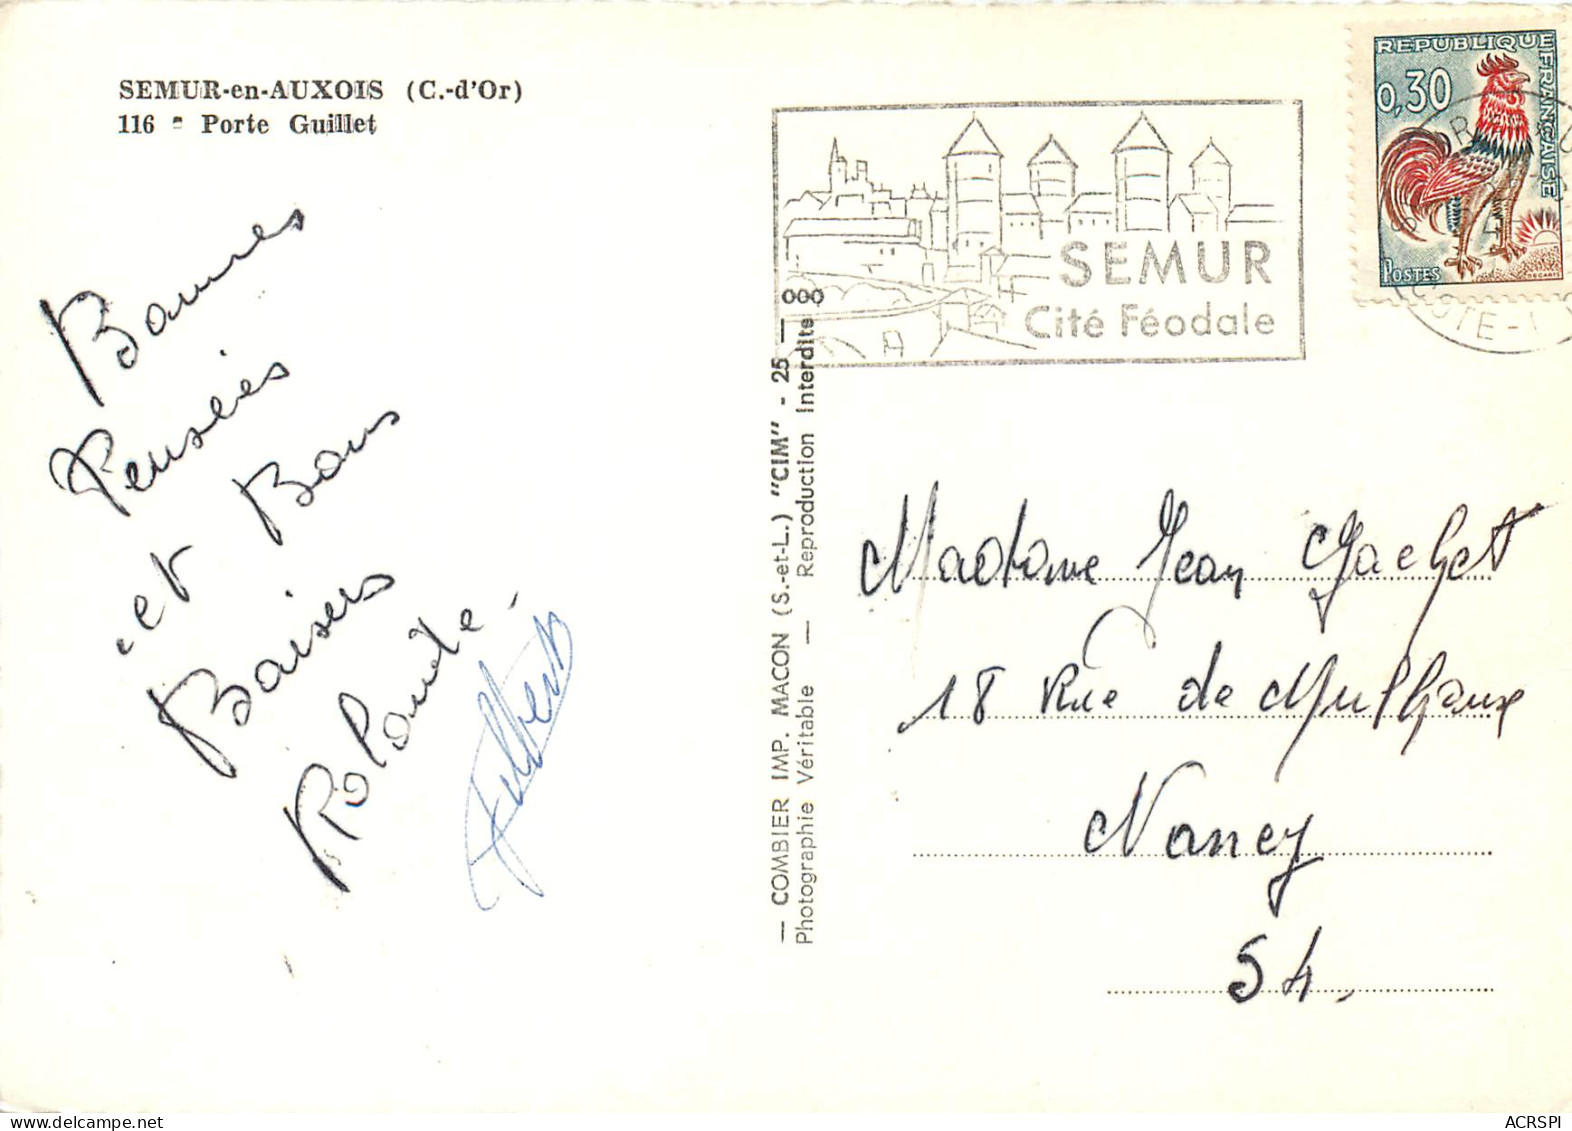 SEMUR-en-AUXOIS (C.-d'Or)
116 - Porte Guillet
Bonnes
Pensées
et Bons
Baisers
Rolande -
— COMBIER IMP. MACON (S.-et-L.) "CIM" - 25 — 000
Photographie Véritable — Reproduction Interdite
SEMUR
Cité Féodale
REPUBLIQUE FRANÇAISE
0,30
POSTES
DECARIS
Madame Jean Gachet
18 Rue de Mulhouse
Nancy
54.
ACRSPI